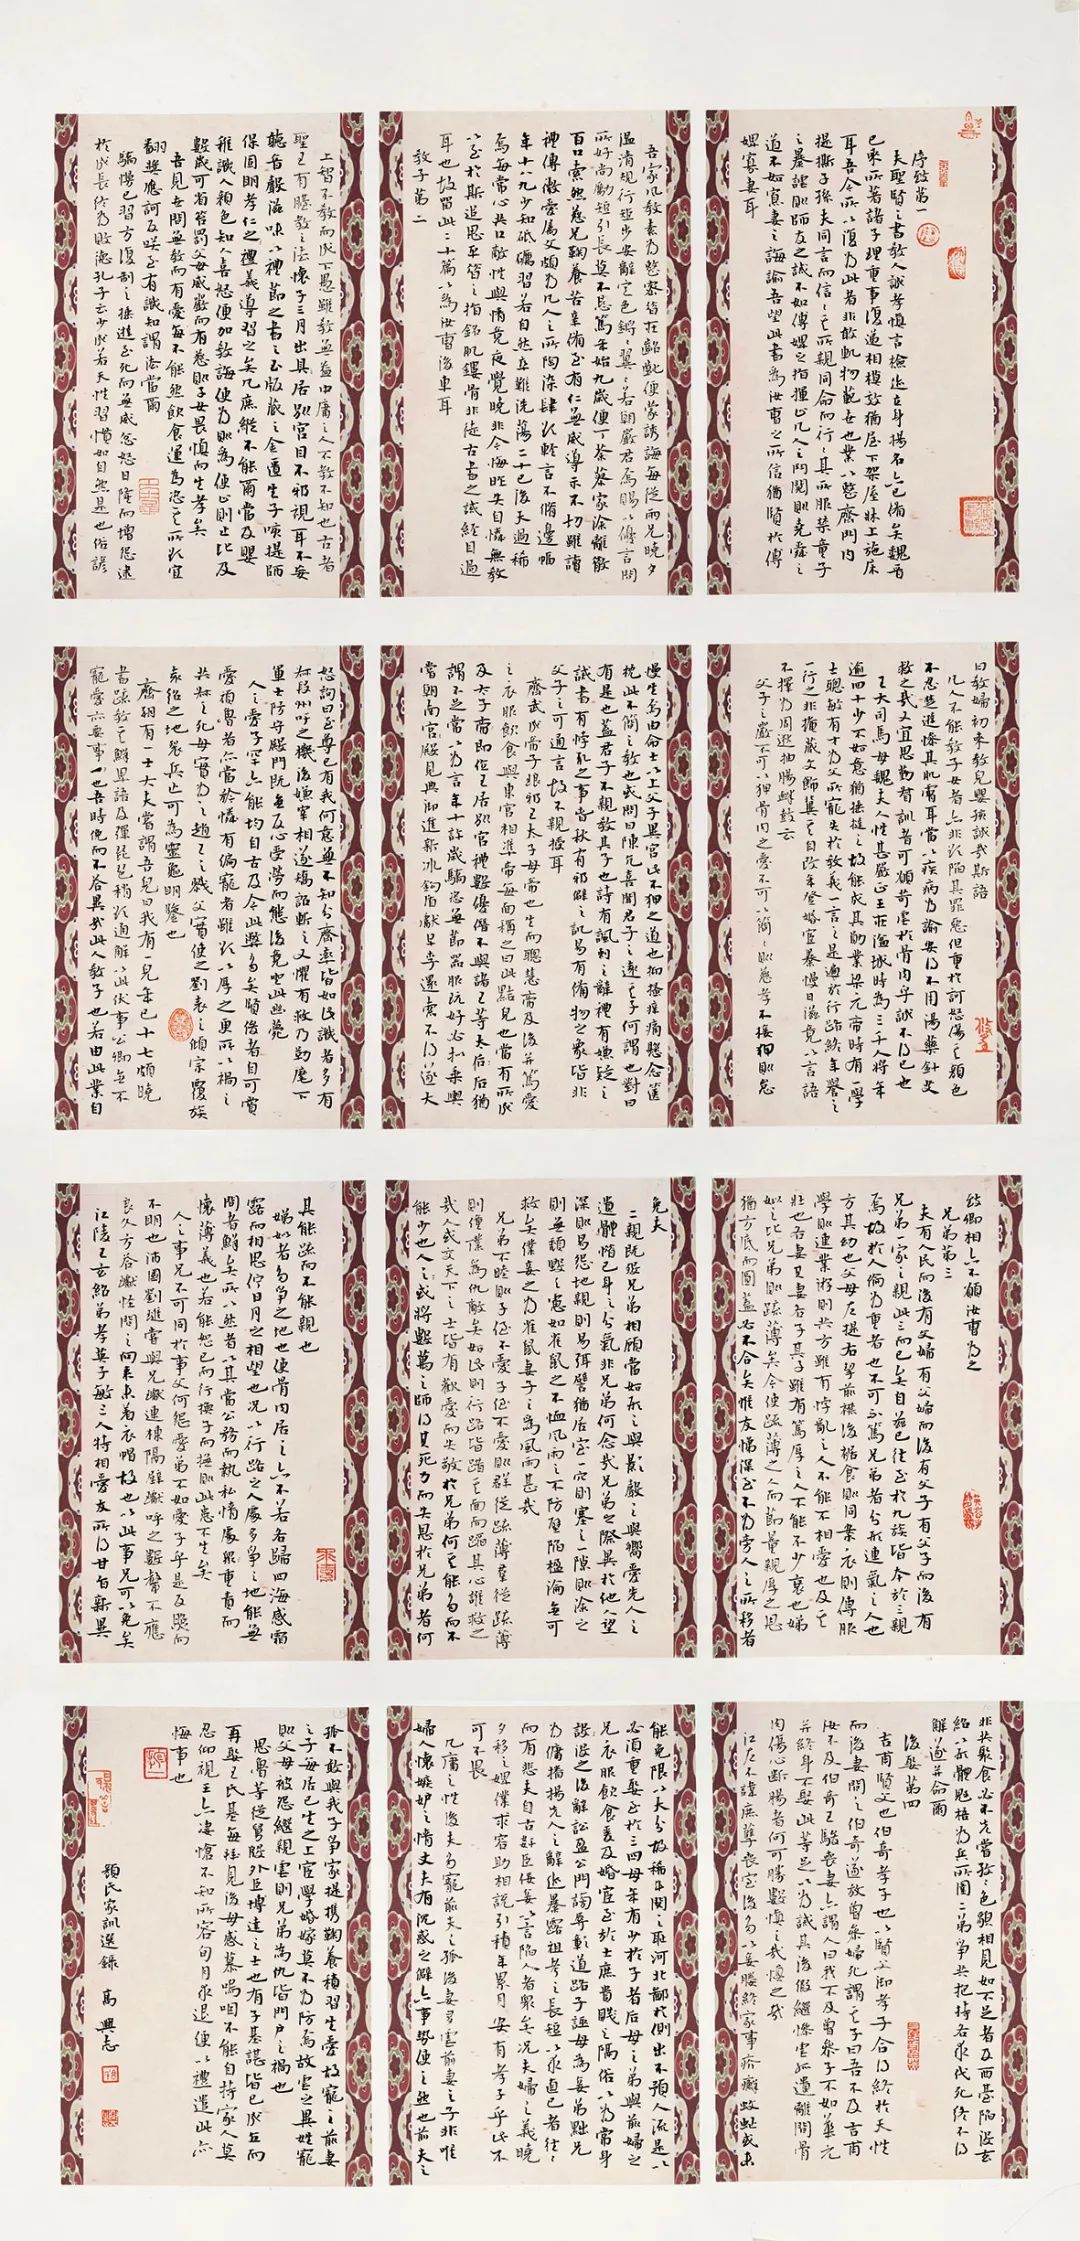 序致第一
夫聖賢之書教人誠孝慎言檢迹立身揚名亦已備矣魏晉
已來所著諸子理重事復遞相模敩猶屋下架屋牀上施床
耳吾今所以復為此者非敢軌物範世也業以整齊門內
提撕子孫夫同言而信之其所親同命而行之其所服禁童子
之暴謔則師友之誡不如傅婢之指揮止凡人之鬥鬩則堯舜之
道不如寡妻之誨諭吾望此書為汝曹之所信猶賢於傅
婢寡妻耳
吾家風教素為整密昔在齠齔便蒙誘誨每從兩兄曉夕
溫清規行矩步安辭定色鏘々翼々若朝嚴君焉賜以優言問
所好尚勵短引長莫不懇篤年始九歲便丁荼蓼家塗離散
百口索然慈兄鞠養苦辛備至有仁無威導示不切雖讀
禮傳微愛屬文頗為凡人之所陶染肆欲輕言不脩邊幅
年十八九少知砥礪習若自然卒難洗蕩二十已後大過稀
焉每常心共口敵性與情競夜覺曉非今悔昨失自憐無教
以至於斯追思平昔之指銘肌鏤骨非徒古書之誡經目過
耳也故留此二十篇以為汝曹後車耳
教子第二
上智不教而成下愚雖教無益中庸之人不教不知也古者
聖王有胎教之法懷子三月出其居別宮目不邪視耳不妄
聽音聲滋味以禮節之書之玉版藏之金匱生子咳提師
保固明孝仁之禮義導習之矣凡庶縱不能爾當及嬰
稚識人顏色知人喜怒便加教誨使為則為使止則止比及
數歲可省笞罰父母威嚴而有慈則子女畏慎而生孝矣
吾見世間無教而有愛每不能然飲食運為恣其所欲宜
翻獎應訶反咲至有識知謂法當爾
驕慢已習方復制之捶撻至死而無威忿怒日隆而增怨逮
於成長終為敗德孔子云少成若天性習慣如自然是也俗諺
曰教婦初來教兒嬰孩誠哉斯語
凡人不能教子女者亦非欲陷其罪惡但重於訶怒傷其顏色
不忍楚撻慘其肌膚耳當以疾病為諭安得不用湯藥針艾
救之哉又宜思勤督訓者可願苛虐於骨肉乎誠不得已也
王大司馬母魏夫人性甚嚴正王在湓城時為三千人將年
逾四十少不如意猶捶撻之故能成其勳業梁元帝時有一學
士聰敏有才為父所寵失於教義一言之是遍於行路終年譽之
一行之非掩藏文飾冀其自改年登婚宦暴慢日滋竟以言語
不擇為周逖抽腸釁鼓云
父子之嚴不可以狎骨肉之愛不可以簡々則慈孝不接狎則怠
慢生焉由命士以上父子異宮此不狎之道也抑搔痒痛懸衾篋
枕此不簡之教也或問曰陳亢喜聞君子之遠其子何謂也對曰
有是也蓋君子不親教其子也詩有諷刺之辭禮有嫌疑之
誡書有悖亂之事春秋有邪僻之譏易有備物之象皆非
父子之可通言故不親授耳
齊武成帝子琅邪王太子母弟也生而聰慧帝及後并篤愛
之衣服飲食與東宮相準帝每面稱之曰此黠兒也當有所成
及太子即位王居別宮禮數優僭不與諸王等太后猶
謂不足常以為言年十許歲驕恣無節器服玩好必擬乘輿
常朝南殿見典御進新冰鉤盾獻早李還索不得遂大
怒訽曰至尊已有我何意無不知分齊率皆如此識者多有
叔段州吁之譏後嫌宰相遂矯詔斬之又懼有救乃勒麾下
軍士防守殿門既無反心受勞而罷後竟坐此幽薨
人之愛子罕亦能均自古及今此弊多矣賢俊者自可賞
愛頑魯者亦當矜憐有偏寵者雖欲以厚之更所以禍之
共叔之死母實為之趙王之戮父實使之劉表之傾宗覆族
袁紹之地裂兵亡可為靈龜明鑒也
齊朝有一士大夫嘗謂吾曰我有一兒年已十七頗曉
書疏教其鮮卑語及彈琵琶稍欲通解以此伏事公卿無不
寵愛亦要事也吾時俛而不答異哉此人教子也若由此業自
致卿相亦不願汝曹為之
兄弟第三
夫有人民而後有夫婦有夫婦而後有父子有父子而後有
兄弟一家之親此三而已矣自茲已往至於九族皆本於三親
焉故於人倫為重者也不可不篤兄弟者分形連氣之人也
方其幼也父母左提右挈前襟後裾食則同案衣則傳服
學則連業游則共方雖有悖亂之人不能不相愛也及其
壯也各妻其妻各子其子雖有篤厚之人不能不少衰也娣
姒之比兄弟則疏薄矣今使疏薄之人而節量親厚之恩
猶方底而圓蓋必不合矣惟友悌深至不為旁人之所移者
免夫
二親既歿兄弟相顧當如形之與影聲之與響愛先人之
遺體惜己身之分氣非兄弟何念哉兄弟之際異於他人望
深則易怨地親則易弭譬猶居室一穴則塞之一隙則塗之
則無頹毀之慮如雀鼠之不恤風雨之不防壁陷楹淪無可
救矣僕妾之為雀鼠妻子之為風雨甚哉
兄弟不睦則子侄不愛子侄不愛則群從疏薄羣從疏薄
則僮僕為仇敵矣如此則行路皆踖其面而蹈其心誰救之
哉人或交天下之士皆有歡愛而失敬於兄弟何其能多而不
能少也人之或將數萬之師得其死力而失恩於兄弟者何
其能疏而不能親也
娣姒者多爭之地也使骨肉居之亦不若各歸四海感霜
露而相思佇日月之相望也況以行路之人處多爭之地能無
間者鮮矣所以然者以其當公務而執私情處眾重責而
懷薄義也若能恕己而行撫子而撫則此患不生矣
人之事兄不可同於事父何怨愛弟不如愛子乎是反照而
不明也沛國劉璡嘗與兄瓛連棟隔壁瓛呼之數聲不應
良久方答瓛怪問之向來未着衣帽故也以此事兄可以免矣
江陵王玄紹弟孝英子敏三人特相愛友所得甘旨新異
非共聚食必不先嘗孜々色貌相見如不足者及西臺陷沒玄
紹以形體魁梧為兵所圍二弟爭共抱持各求代死終不得
解遂并命爾
後娶第四
吉甫賢父也伯奇孝子也以賢父御孝子合得終於天性
而後妻間之伯奇遂放曾參婦死謂其子曰吾不及吉甫
汝不及伯奇王駿喪妻亦謂人曰我不及曾參子不如華元
并終身不娶此等足以為誡其後假繼慘虐孤遺離間骨
肉傷心斷腸者何可勝數慎之哉慎之哉
江左不諱庶孽喪室後多以妾媵終家事疥癬蚊虻或未
能免限以大分故稀鬥鬩之恥河北鄙於側出不預人流是以
必須重娶至於三四母年有少於子者后母之弟與前婦之
兄衣服飲食爰及婚宦至於士庶貴賤之隔俗以為常身
沒之後辭訟盈公門謗辱彰道路子誣母為妾弟黜兄
為傭播揚先人之辭迹暴露祖考之長短以求直己者往々
而有悲夫自古奸臣佞妾以言陷人者眾矣況夫婦之義曉
夕移之婢僕求容助相說引積年累月安有孝子乎此不
可不畏
凡庸之性後夫多寵前夫之孤後妻多虐前妻之子非唯
婦人懷嫉妒之情丈夫有沉惑之僻亦事勢使之然也前夫之
孤不敢與我子爭家提攜鞠養積習生愛故寵之前妻
之子每居己生之上宦學婚嫁莫不為防焉故虐之異姓寵
則父母被怨繼親虐則兄弟為仇皆門戶之禍也
思魯等從舅殷外臣博達之士也有子基諶皆已成立而
再娶王氏基每拜見後母感慕嗚咽不能自持家人莫
忍仰視王亦淒愴不知所容旬月求退便以禮遣此亦
悔事也
顏氏家訓選錄 高興志